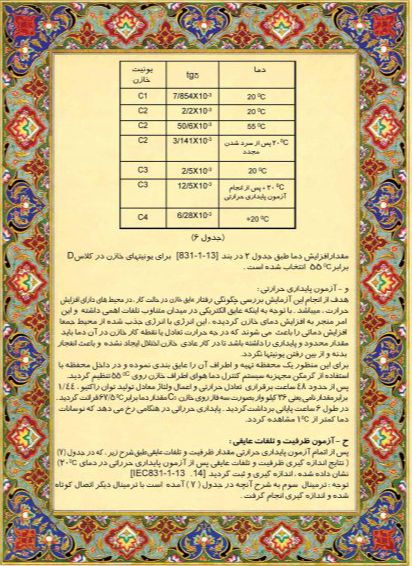 دما tgδ یونیت خازن
20 ⁰C 7/854X10⁻³ C1
20 ⁰C 2/2X10⁻³ C2
55 ⁰C 50/6X10⁻³ C2
۲۰ ⁰C پس از سرد شدن مجدد 3/141X10⁻³ C2
20 ⁰C 2/5X10⁻³ C3
۲۰ ⁰C + پس از انجام آزمون پایداری حرارتی 12/5X10⁻³ C3
+20 ⁰C 6/28X10⁻³ C4
(جدول ۶)
مقدارافزایش دما طبق جدول ۲ در بند [13-1-831] برای یونیتهای خازن در کلاس D
برابر ۵۵ ⁰C انتخاب شده است .
و – آزمون پایداری حرارتی :
هدف از انجام این آزمایش بررسی چگونگی رفتار عایق خازن در حالت کار . در محیط های دارای افزایش
حرارت ، میباشد . با توجه به اینکه عایق الکتریکی در میدان متناوب تلفات اهمی داشته و این
امر منجر به افزایش دمای خازن گردیده ، این انرژی با انرژی جذب شده از محیط جمعا
افزایش دمائی را باعث می شوند که در چه حرارت تعادل یا نقطه کار خازن در آن دما باید
مقدار محدود و پایداری را داشته باشد تا در کار عادی خازن اختلال ایجاد نشده و باعث انفجار
بدنه و از بین رفتن یونیتها نگردد.
برای این منظور یک محفظه تهیه و اطراف آن را عایق بندی نموده و در داخل محفظه با
استفاده از گرمکن مجهز به سیستم کنترل دما هوای اطراف خازن روی ۵۵ ⁰C تنظیم گردید.
پس از حدود ٤۸ ساعت برقراری تعادل حرارتی و اعمال ولتاژ معادل تولید توان راکتیو ، ۱/٤٤
برابر مقدار نامی یعنی ۳۶ کیلو وار بصورت سه فاز روی خازن C₁ مقدار دما برابر ۶۷/۵⁰C قرائت گردید.
در طول ۶ ساعت پایانی برداشت گردید . پایداری حرراتی در هنگامی رخ می دهد که نوسانات
دما کمتر از ۱⁰C مشاهده گردد.
ح – آزمون ظرفیت و تلفات عایقی :
پس از اتمام آزمون پایداری حرارتی مقدار ظرفیت و تلفات عایقی طبق شرح زیر ، که در جدول (۷)
( نتایج اندازه گیری ظرفیت و تلفات عایقی پس از آزمون پایداری حرراتی در دمای ۲۰⁰C)
نشان داده شده ، اندازه گیری و ثبت گردید [14. IEC831-1-13]
توجه : ترمینال سوم به شرح آنچه در جدول ( ۷ ) آمده است با ترمینال دیگر اتصال کوتاه
شده و اندازه گیری انجام گرفت .